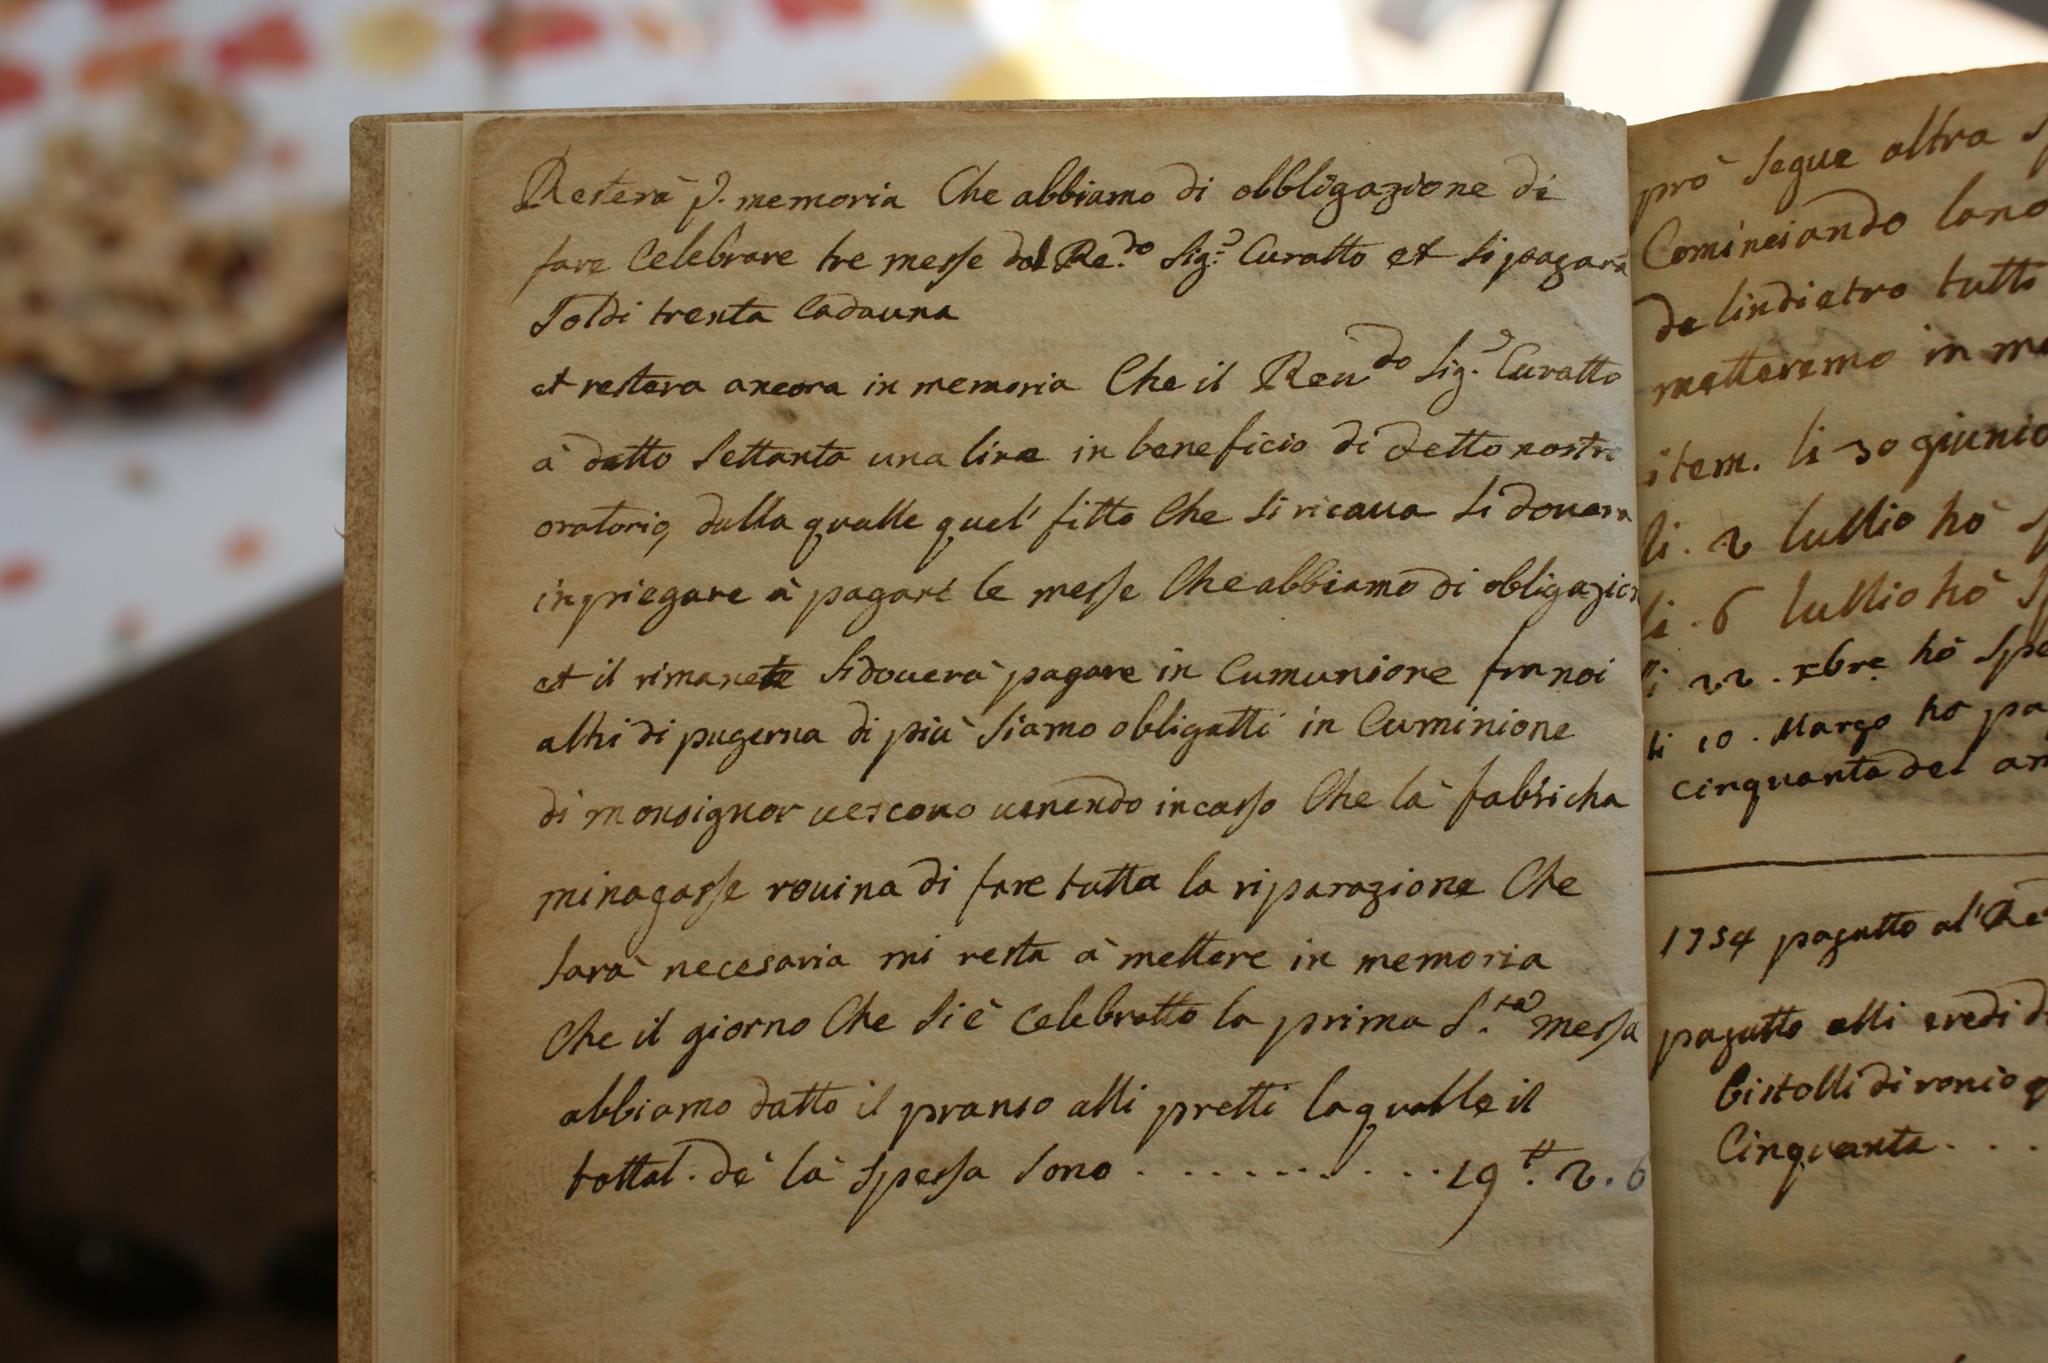 Resterà p. memoria Che abbiamo di obbligazione di
fare Celebrare tre messe dal Re.do Sig.r Curatto et si pagarà
Soldi trenta Cadauna
et restera ancora in memoria Che il Reu.do Sig.r Curatto
à datto Settanta una lire in beneficio di detto nostro
oratorio, dalla qualle quel' fitto Che si ricaua si douera
inpiegare à pagare le messe Che abbiamo di obligazion
et il rimanete si douerà pagare in Cumunione fra noi
altri di pugerna di più siamo obligatti in Cuminione
di monsignor uescouo uenendo in casso Che la fabricha
minagasse rouina di fare tutta la riparazione Che
sarà necesaria mi resta à mettere in memoria
Che il giorno Che si è Celebratto la prima S.ta messa
abbiamo datto il pranso alli pretti la qualle il
tottal. de là spessa sono . . . . . . . . . . 19 tt. 2. 6
prò segue altra
Cominciando
de lindietro tutto
metteremo in
item. li 30 giunio
li. 2 lullio hò
li. 6 lullio hò
li 22. xbre hò
li 10. Marzo hò
cinquanta del
1754 pagatto al'
pagatto alli eredi
di ronio
Cinquanta . . .